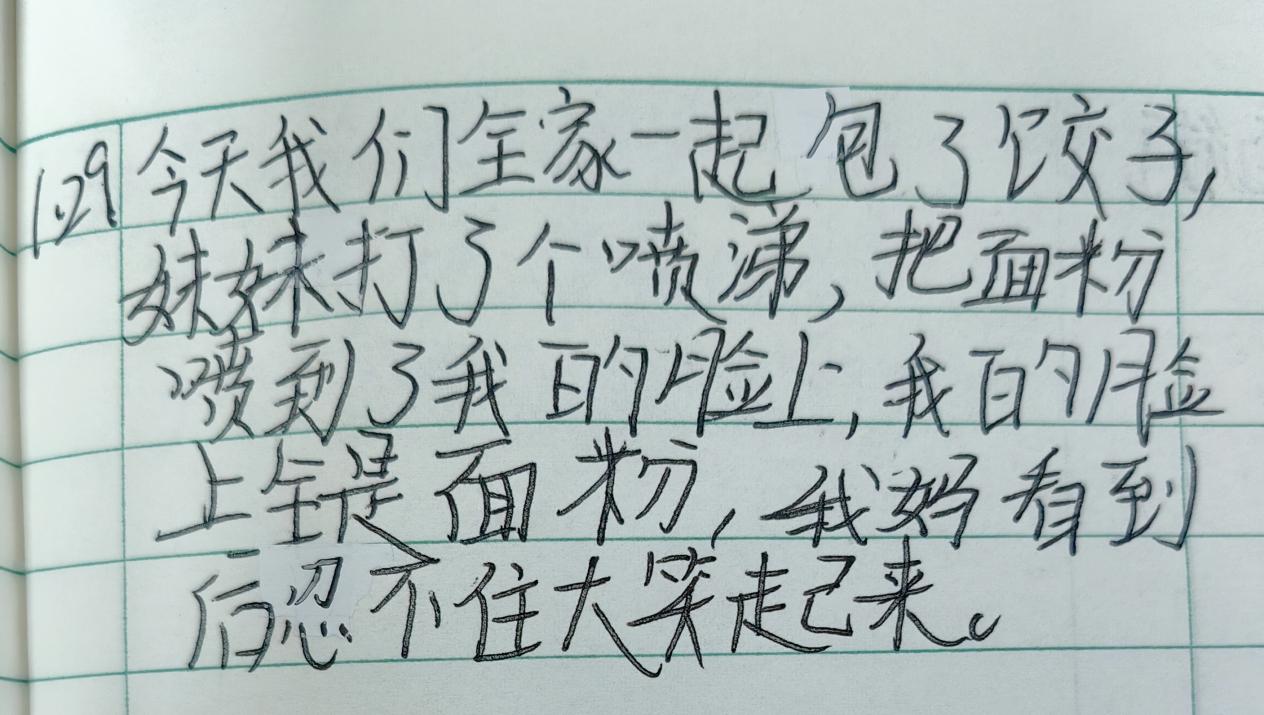 1.29 今天我们全家一起包了饺子,
妹妹打了个喷涕,把面粉
喷到了我的脸上,我的脸
上全是面粉,我妈看到
后忍不住大笑起来。